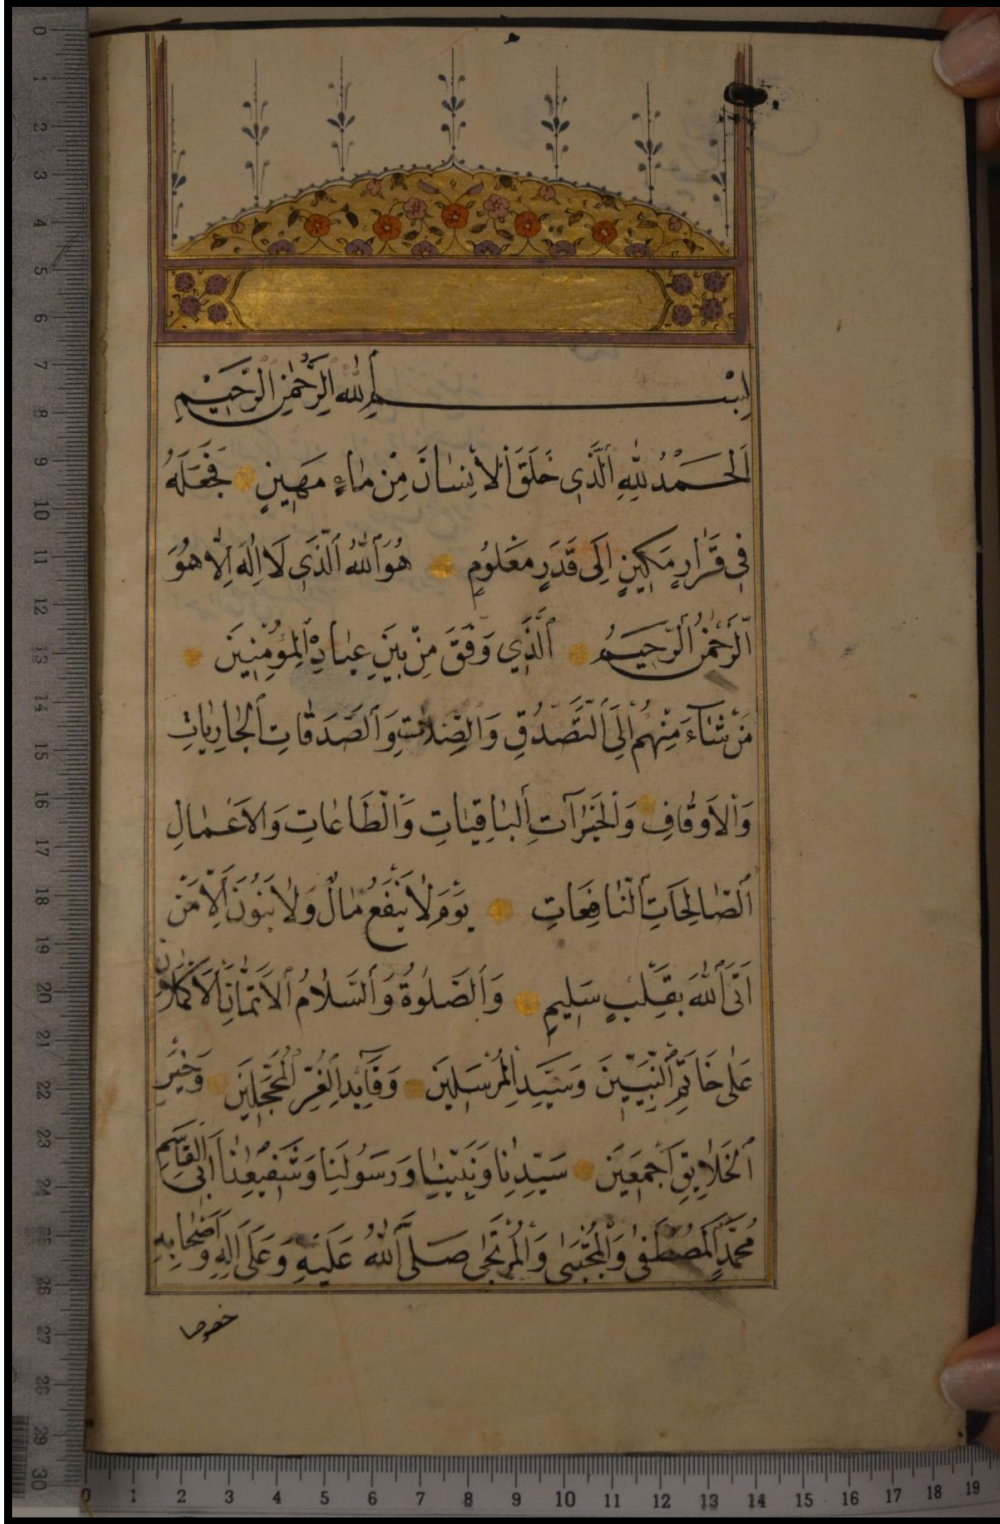 بِسْمِ اللهِ الرَّحْمٰنِ الرَّحِيْمِ
اَلْحَمْدُ لِلّٰهِ الَّذِي خَلَقَ الْاِنْسَانَ مِنْ مَاءٍ مَهِينٍ فَجَعَلَهُ
فِي قَرَارٍ مَكِينٍ اِلَى قَدَرٍ مَعْلُومٍ هُوَ اللهُ الَّذِي لَا اِلٰهَ اِلَّا هُوَ
الرَّحْمٰنُ الرَّحِيمُ الَّذِي وَفَّقَ مِنْ بَيْنِ عِبَادِهِ الْمُؤْمِنِينَ
مَنْ شَاءَ مِنْهُمْ اِلَى التَّصَدُّقِ وَالصِّلَاتِ وَالصَّدَقَاتِ الْجَارِيَاتِ
وَالْاَوْقَافِ وَالْخَيْرَاتِ الْبَاقِيَاتِ وَالطَّاعَاتِ وَالْاَعْمَالِ
الصَّالِحَاتِ النَّافِعَاتِ يَوْمَ لَا يَنْفَعُ مَالٌ وَلَا بَنُونَ اِلَّا مَنْ
اَتَى اللهَ بِقَلْبٍ سَلِيمٍ وَالصَّلٰوةُ وَالسَّلَامُ الْاَتَمَّانِ الْاَكْمَلَانِ
عَلَى خَاتَمِ النَّبِيِّينَ وَسَيِّدِ الْمُرْسَلِينَ وَقَائِدِ الْغُرِّ الْمُحَجَّلِينَ وَخَيْرِ
الْخَلَايِقِ اَجْمَعِينَ سَيِّدِنَا وَنَبِيِّنَا وَرَسُولِنَا وَشَفِيعِنَا اَبِي الْقَاسِمِ
مُحَمَّدٍ الْمُصْطَفَى وَالْمُجْتَبَى وَالْمُرْتَجَى صَلَّى اللهُ عَلَيْهِ وَعَلَى اٰلِهِ وَاَصْحَابِهِ
خصوصا
0 1 2 3 4 5 6 7 8 9 10 11 12 13 14 15 16 17 18 19 20 21 22 23 24 25 26 27 28 29 30
0 1 2 3 4 5 6 7 8 9 10 11 12 13 14 15 16 17 18 19